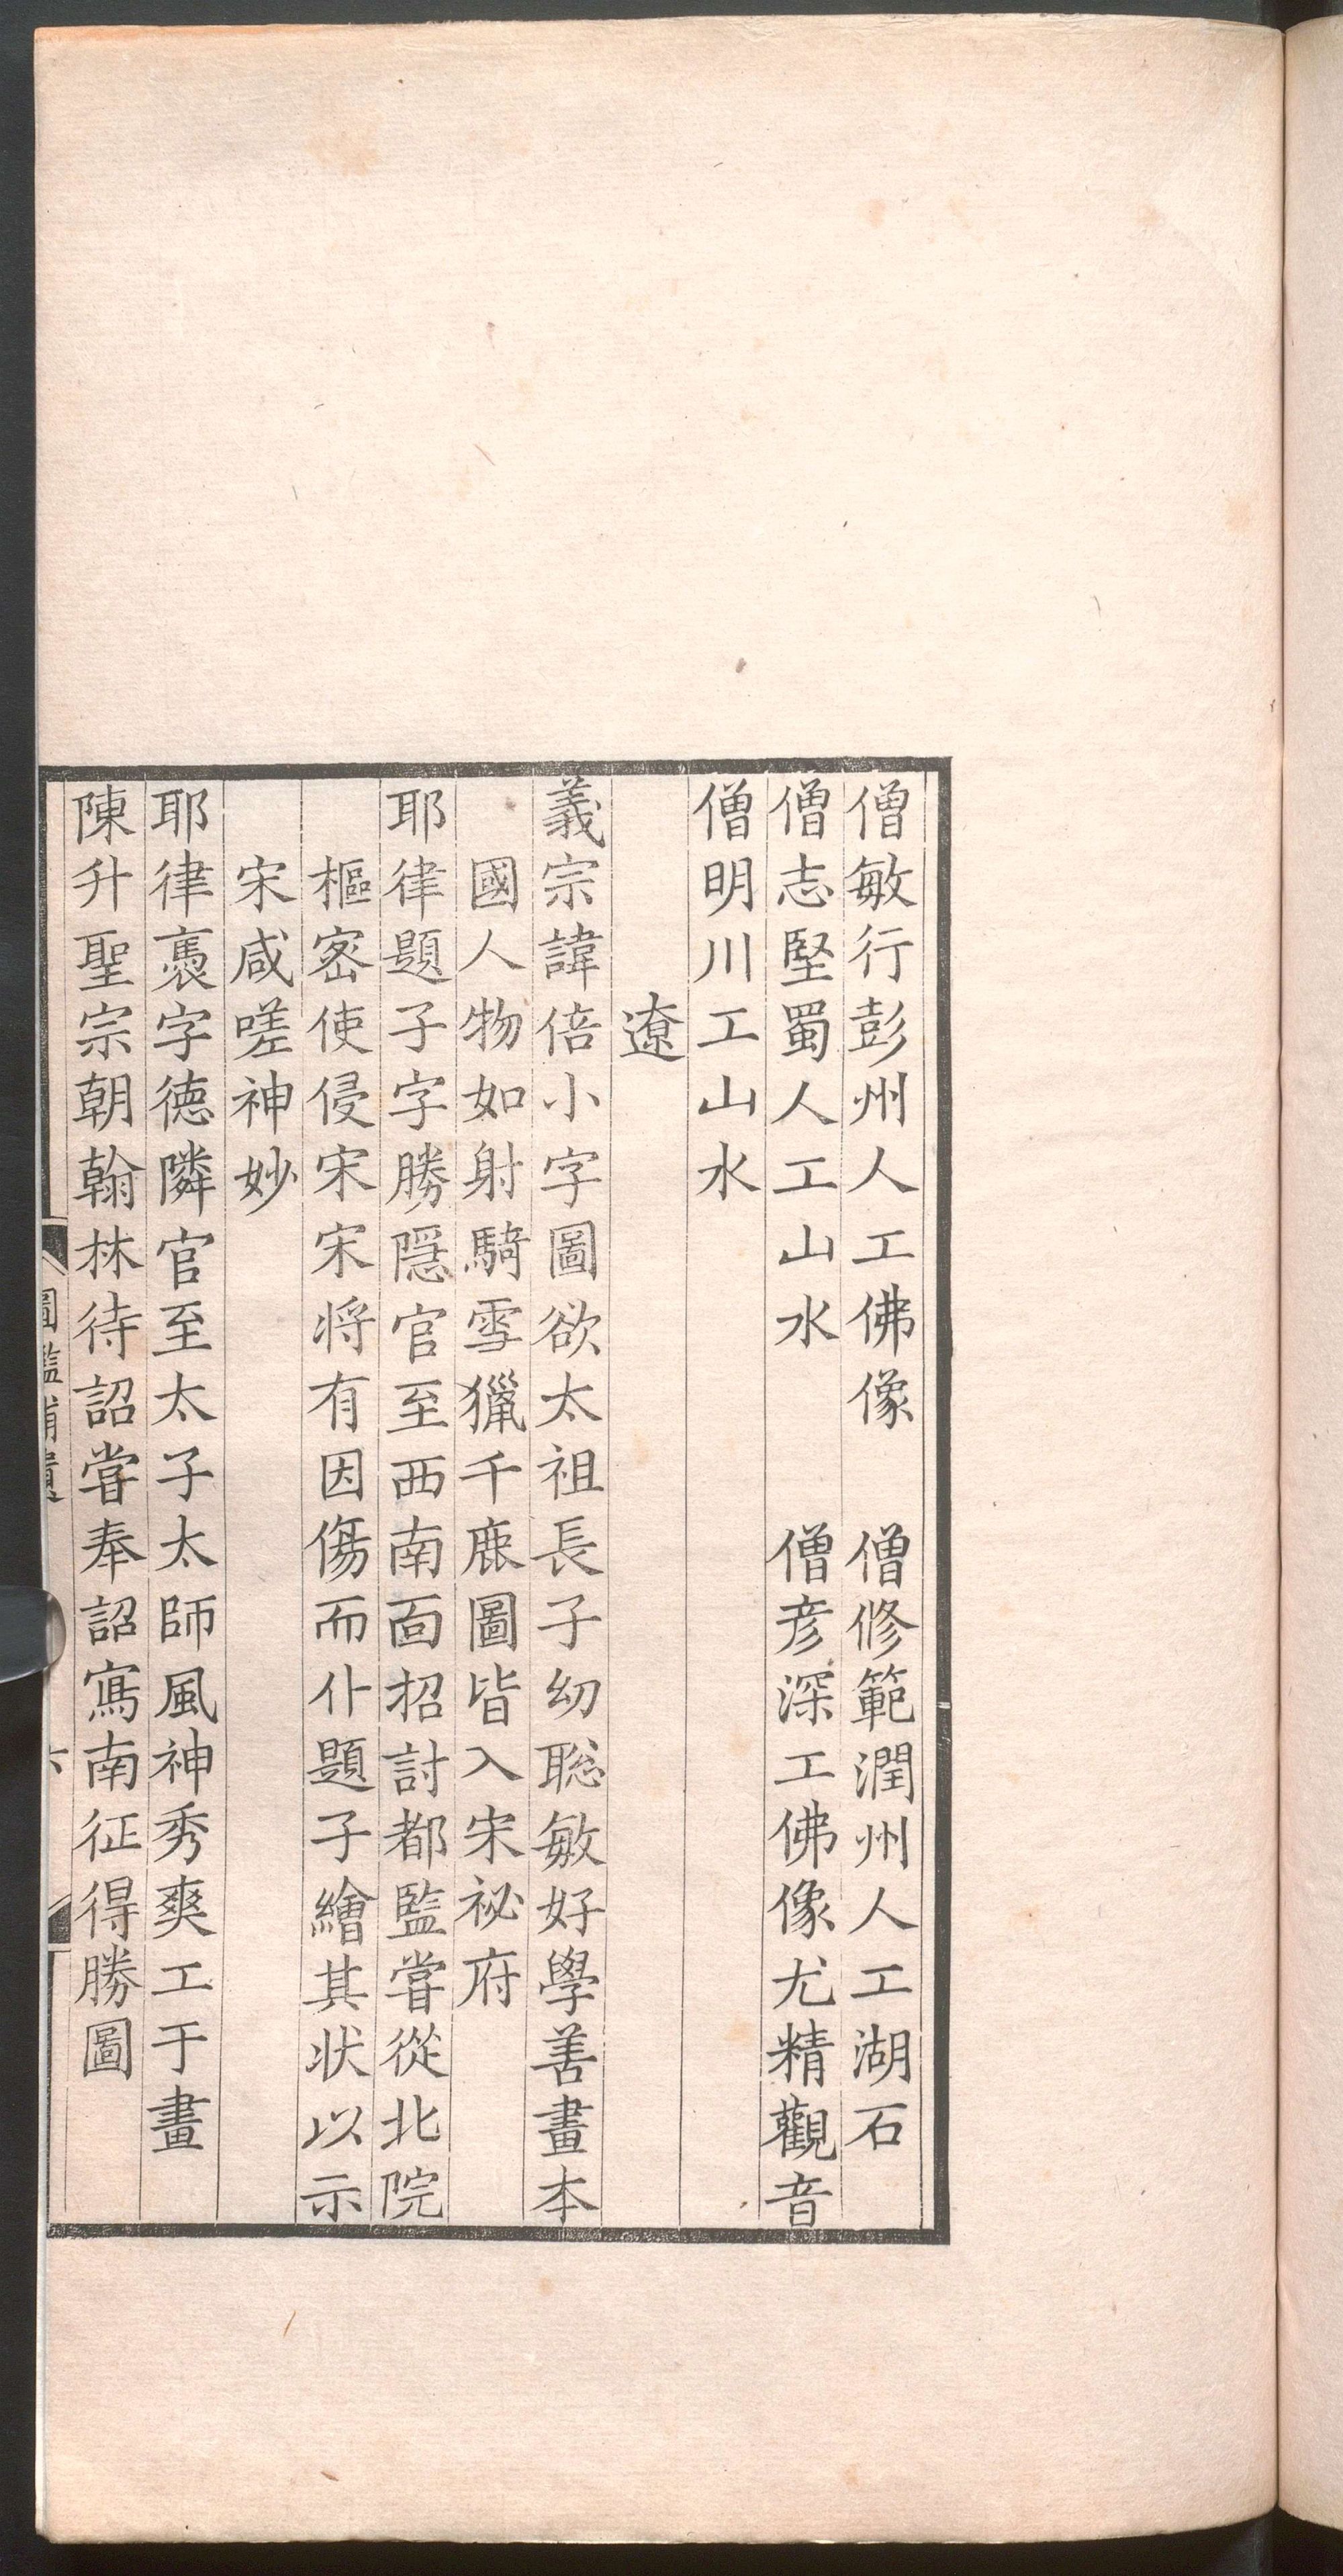 僧敏行彭州人工佛像　僧修範潤州人工湖石
僧志堅蜀人工山水　僧彥深工佛像尤精觀音
僧明川工山水
遼
義宗諱倍小字圖欲太祖長子幼聰敏好學善畫本
國人物如射騎雪獵千鹿圖皆入宋祕府
耶律題子字勝隱官至西南面招討都監嘗從北院
樞密使侵宋宋將有因傷而仆題子繪其狀以示
宋咸嗟神妙
耶律褭字德隣官至太子太師風神秀爽工于畫
陳升聖宗朝翰林待詔嘗奉詔寫南征得勝圖
圖鑑補遺
六